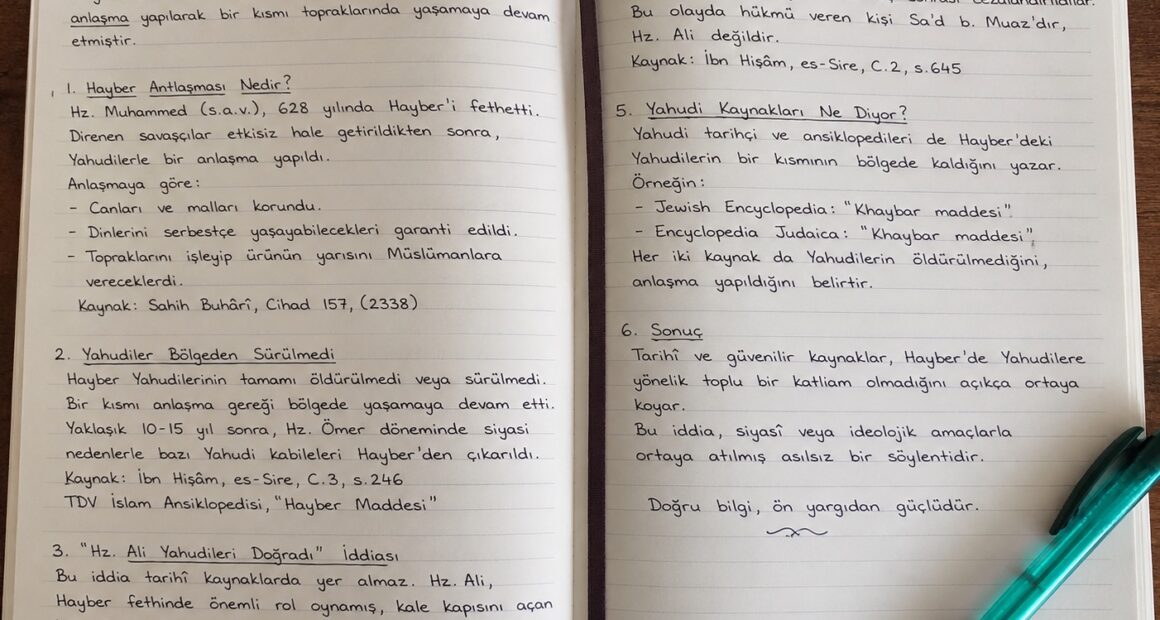 anlaşma yapılarak bir kısmı topraklarında yaşamaya devam
etmiştir.
1. Hayber Antlaşması Nedir?
Hz. Muhammed (s.a.v.), 628 yılında Hayber'i fethetti.
Direnen savaşçılar etkisiz hale getirildikten sonra,
Yahudilerle bir anlaşma yapıldı.
Anlaşmaya göre:
- Canları ve malları korundu.
- Dinlerini serbestçe yaşayabilecekleri garanti edildi.
- Topraklarını işleyip ürünün yarısını Müslümanlara
vereceklerdi.
Kaynak: Sahih Buhârî, Cihad 157, (2338)
2. Yahudiler Bölgeden Sürülmedi
Hayber Yahudilerinin tamamı öldürülmedi veya sürülmedi.
Bir kısmı anlaşma gereği bölgede yaşamaya devam etti.
Yaklaşık 10-15 yıl sonra, Hz. Ömer döneminde siyasi
nedenlerle bazı Yahudi kabileleri Hayber'den çıkarıldı.
Kaynak: İbn Hişâm, es-Sire, C.3, s.246
TDV İslam Ansiklopedisi, "Hayber Maddesi"
3. "Hz. Ali Yahudileri Doğradı" İddiası
Bu iddia tarihî kaynaklarda yer almaz. Hz. Ali,
Hayber fethinde önemli rol oynamış, kale kapısını açan
Bu olayda hükmü veren kişi Sa'd b. Muaz'dır,
Hz. Ali değildir.
Kaynak: İbn Hişâm, es-Sire, C.2, s.645
5. Yahudi Kaynakları Ne Diyor?
Yahudi tarihçi ve ansiklopedileri de Hayber'deki
Yahudilerin bir kısmının bölgede kaldığını yazar.
Örneğin:
- Jewish Encyclopedia: "Khaybar maddesi"
- Encyclopedia Judaica: "Khaybar maddesi"
Her iki kaynak da Yahudilerin öldürülmediğini,
anlaşma yapıldığını belirtir.
6. Sonuç
Tarihî ve güvenilir kaynaklar, Hayber'de Yahudilere
yönelik toplu bir katliam olmadığını açıkça ortaya
koyar.
Bu iddia, siyasî veya ideolojik amaçlarla
ortaya atılmış asılsız bir söylentidir.
Doğru bilgi, ön yargıdan güçlüdür.